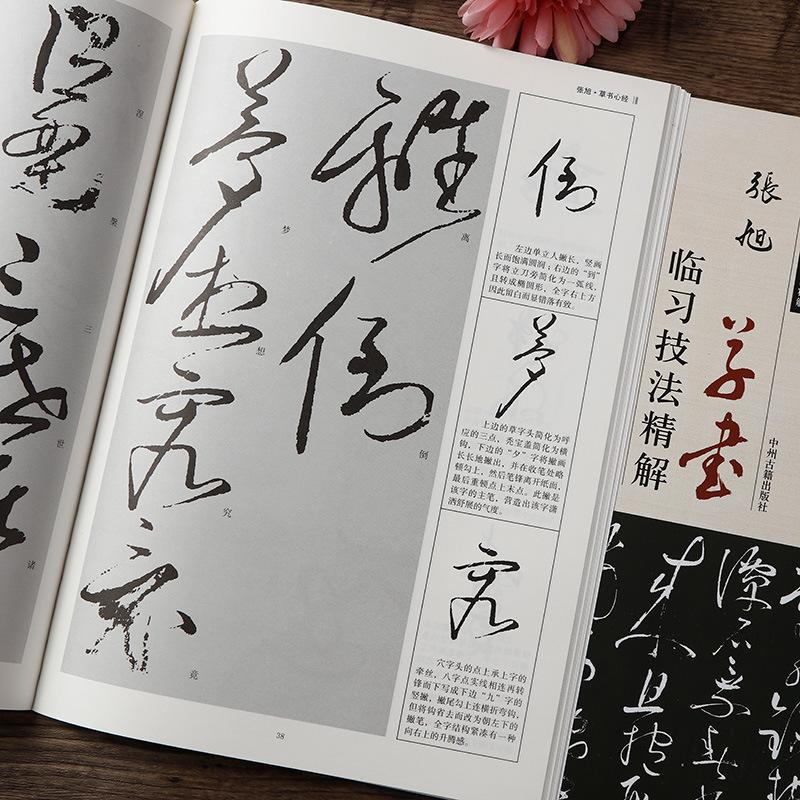 张旭·草书心经
離倒
离
倒
夢想究竟
梦
想
究
竟
涅槃三世諸
涅
槃
三
世
诸
倒
左边单立人撇长，竖画
长而饱满圆润；右边的“到”
字将立刀旁简化为一弧线，
且转成椭圆形，全字右上方
因此留白而显错落有致。
夢
上边的草字头简化为呼
应的三点，秃宝盖简化为横
钩，下边的“夕”字将撇画
长长地撇出，并在收笔处略
顿勾上，然后笔锋离开纸面，
最后重顿点上末点。此撇是
该字的主笔，营造出该字潇
洒舒展的气度。
究
穴字头的点上承上字的
牵丝，八字点实线相连再转
锋而下写成下边“九”字的
竖撇，撇尾勾上连横折弯钩，
但将钩省去而改为朝左下的
撇笔，全字结构紧凑有一种
向右上的升腾感。
38
張旭
草書
临习技法精解
中州古籍出版社